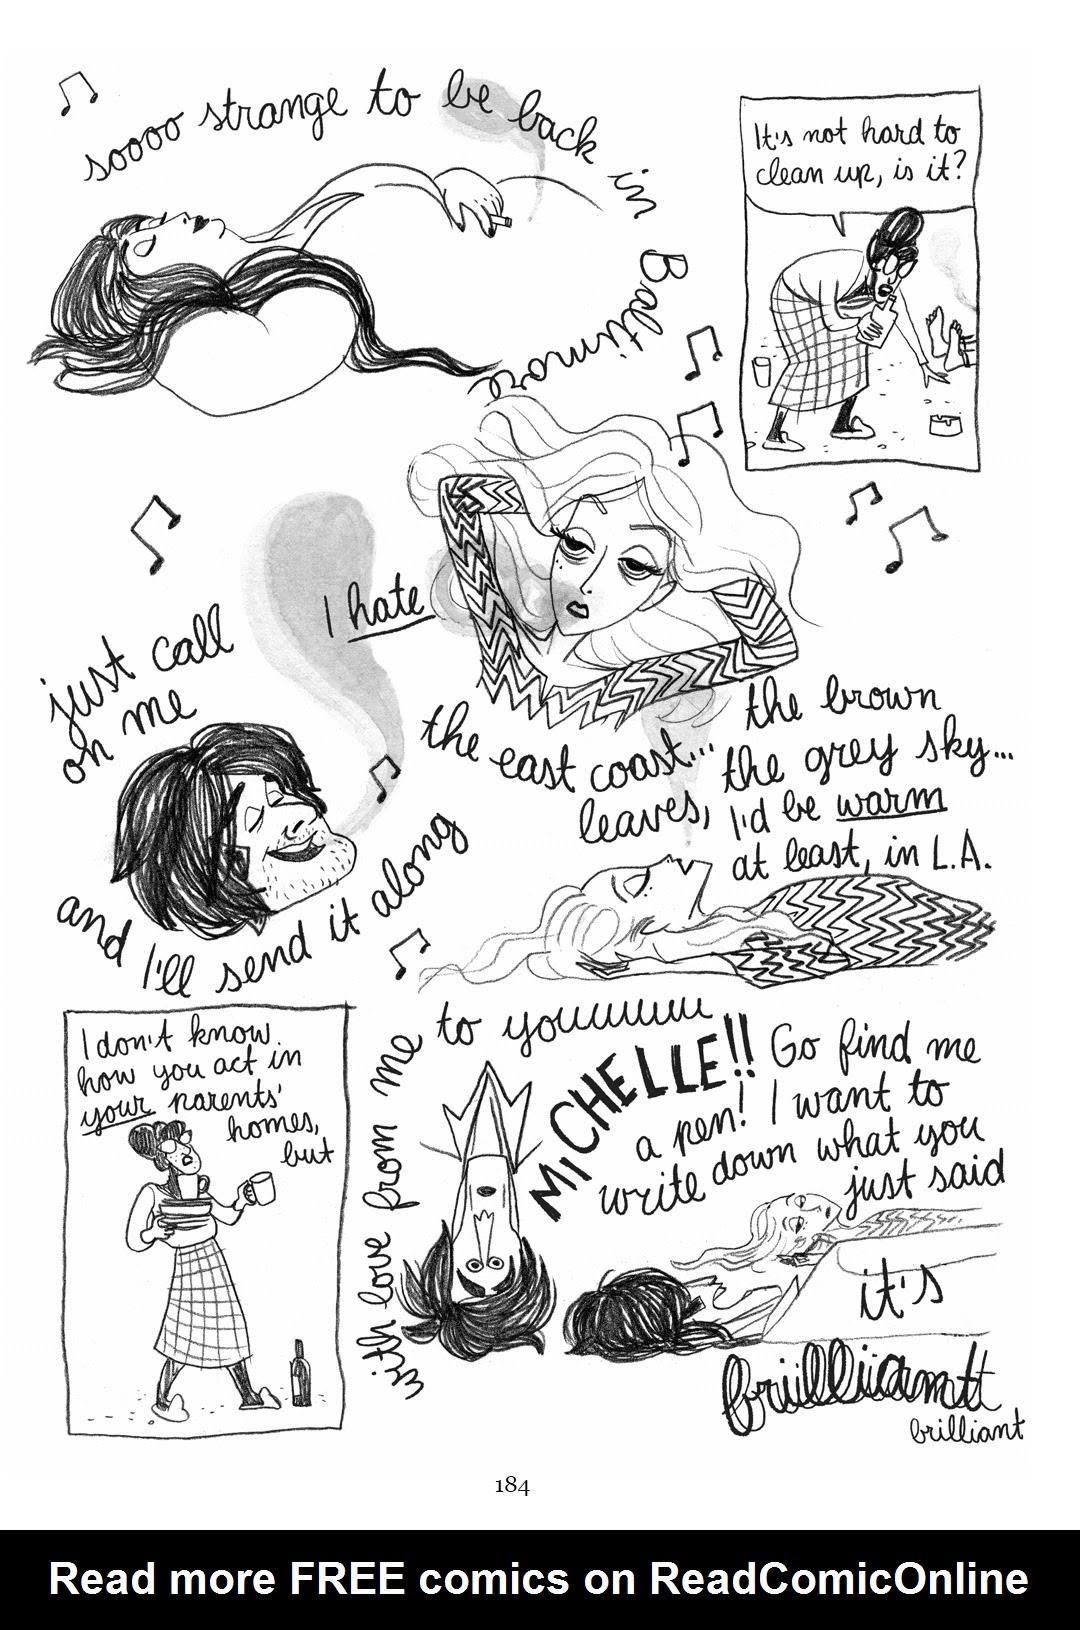 soooo strange to be back in Baltimore
It's not hard to
clean up, is it?
I hate
the east coast... the brown
leaves, the grey sky...
I'd be warm
at least, in L.A.
just call
on me
and I'll send it along
with love from me to youuuuuu
I don't know
how you act in
your parents'
homes,
but
MICHELLE!! Go find me
a pen! I want to
write down what you
just said
it's
brilliant
brilliant
184
Read more FREE comics on ReadComicOnline